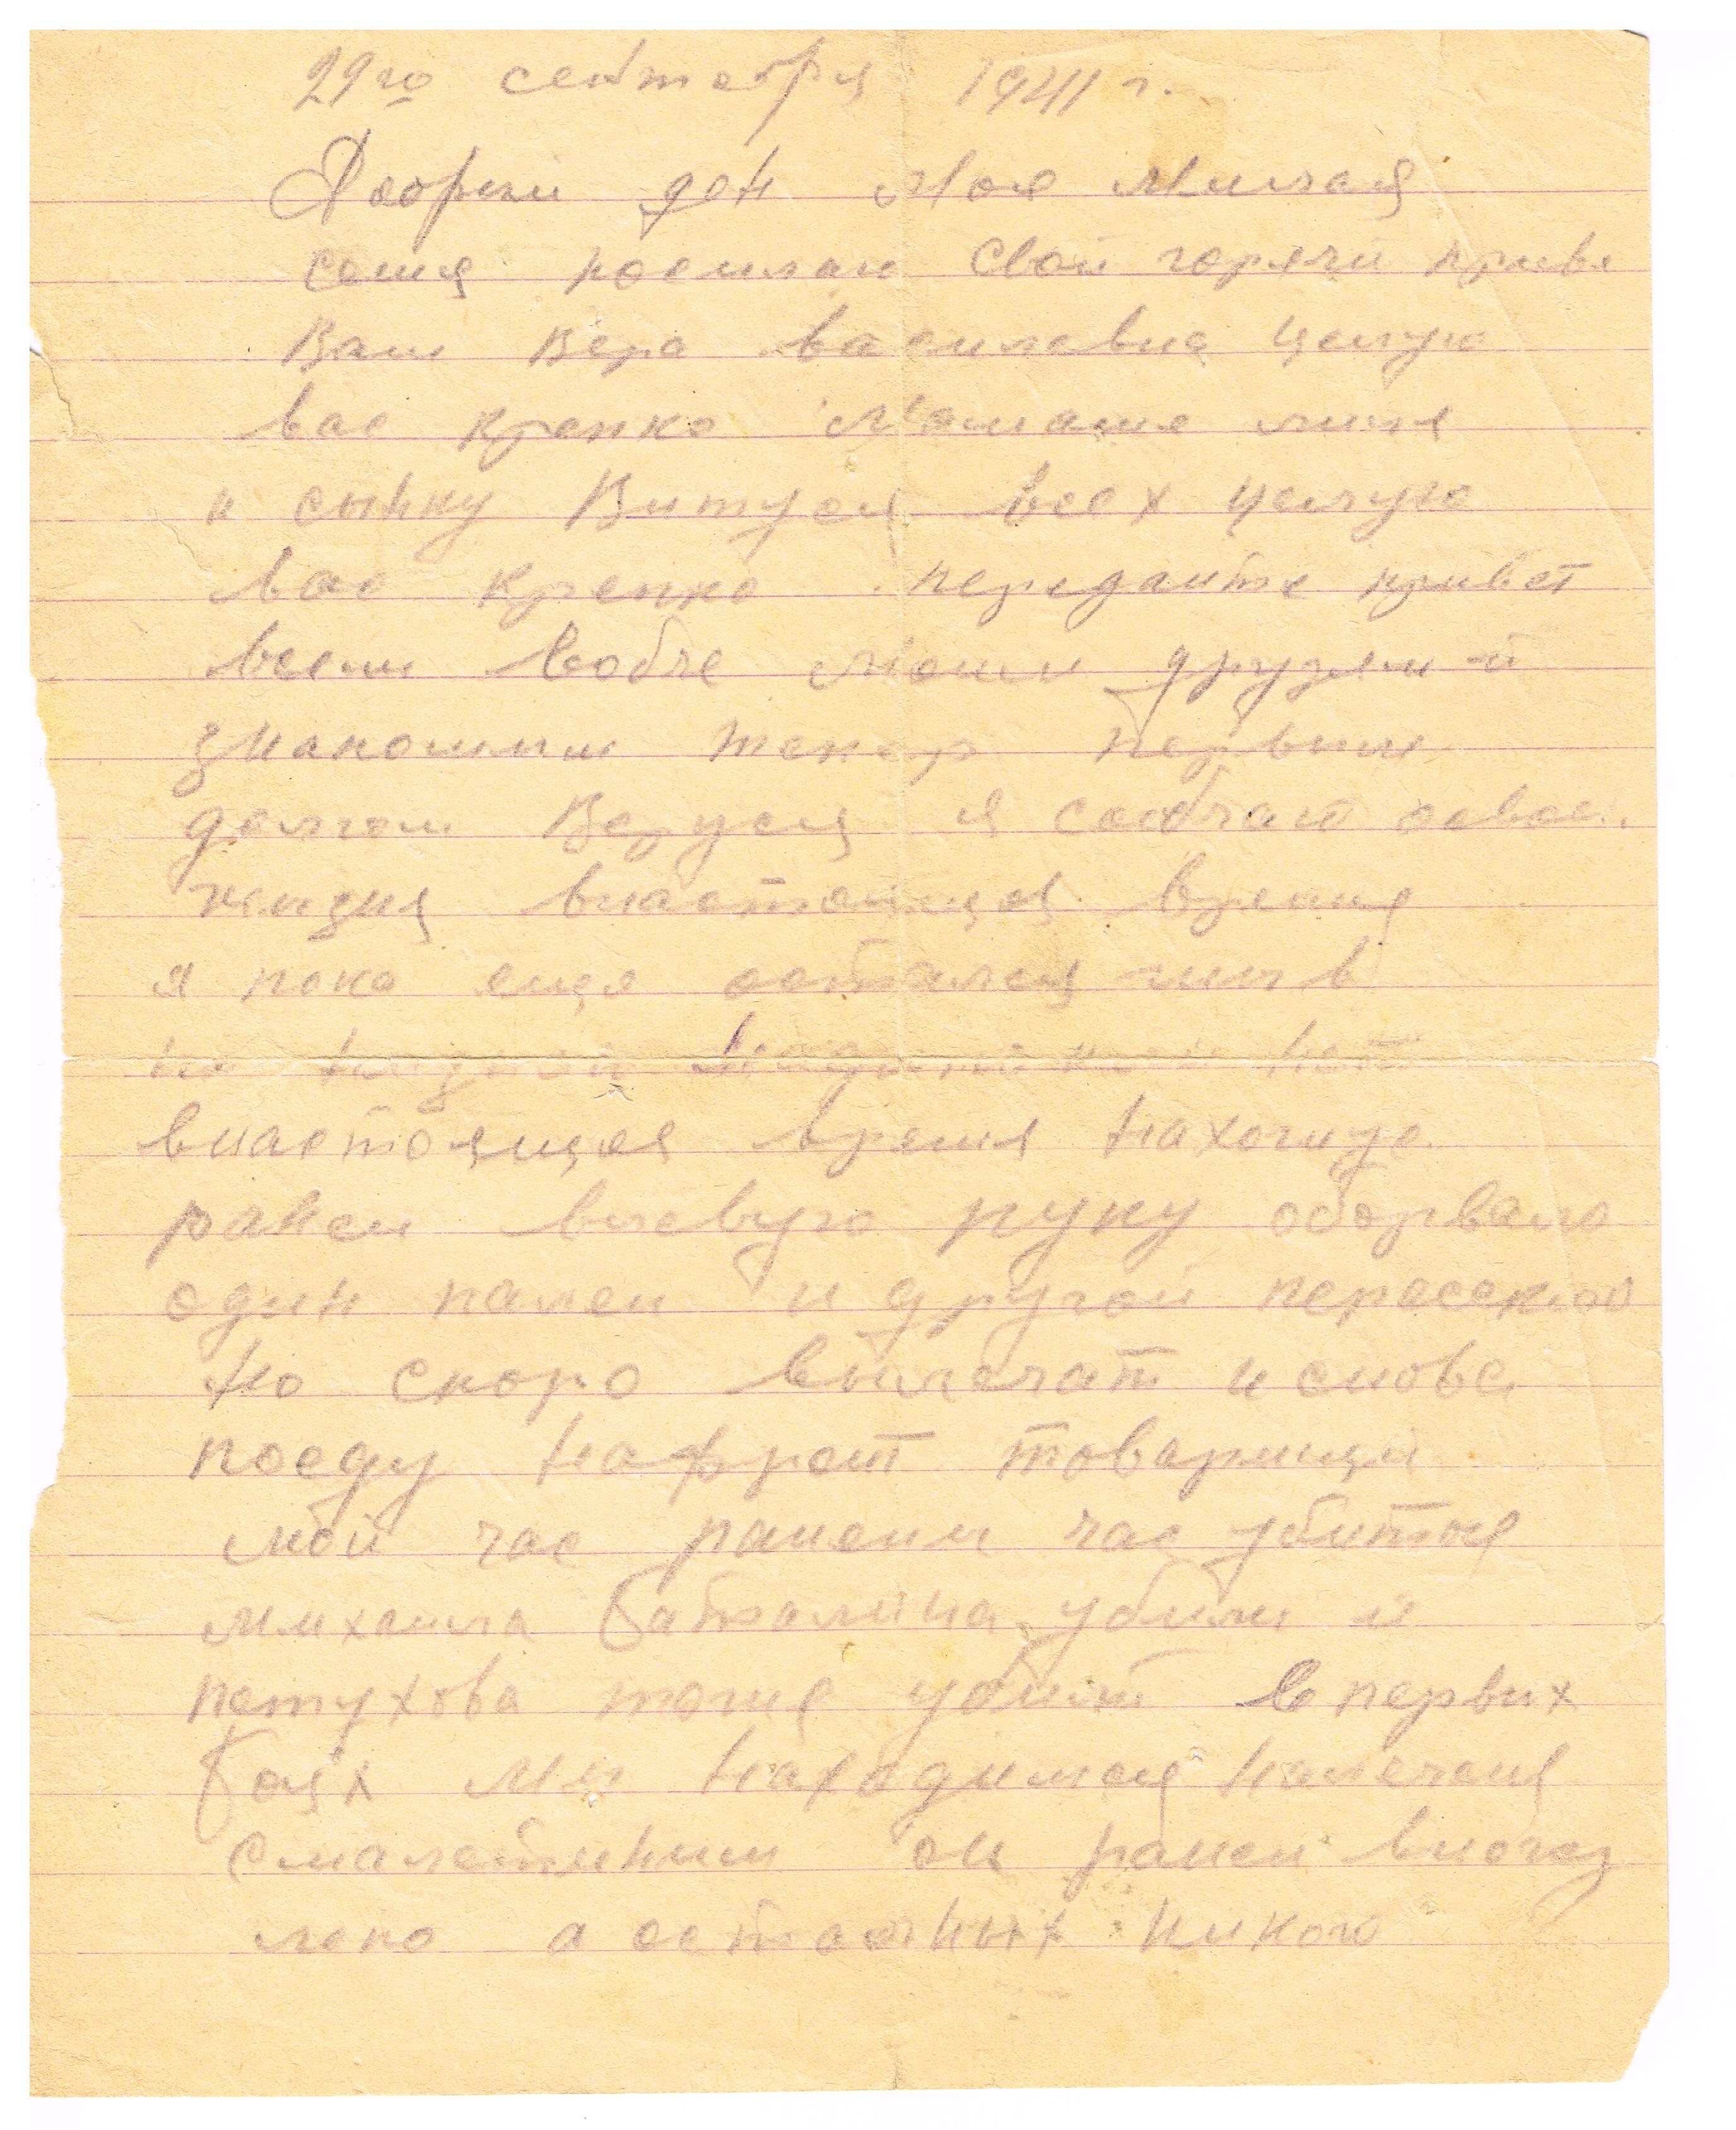 29го сентября 1941 г.
Добрый ден моя милая
семя посилаю свой горячи приве
Вам Вера василевна целую
вас крепко Мамаше
и сынку Витуся всех целую
вас крепко передайте привет
всем вобче моим друзям и
знакомым тепер первым
долгом Веруся я сообчаю освоей
жизня внастоящея время
я пока еще остался жив
но
внастоящея время нахожус
ранен влевую руку оборвало
один палец и другой пересекло
но скоро вылечат и снова
поеду нафронт товарищи
мои час ранены час убитые
михаила баталина убили и
петухова тоже убит впервых
боях мы находимся налечения
он ранен вногу
леко а осталных никого